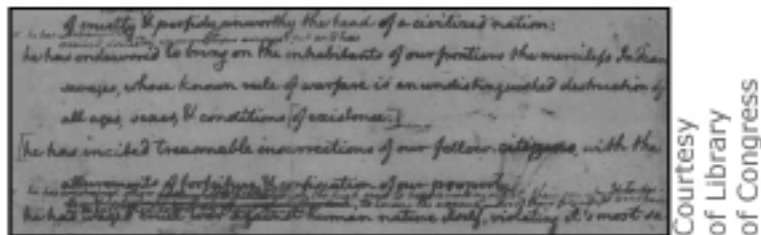 of cruelty & perfidy unworthy the head of a civilized nation:
he has endeavored to bring on the inhabitants of our frontiers the merciless Indian
savages, whose known rule of warfare is an undistinguished destruction of
all ages, sexes, & conditions [of existence.]
[he has incited treasonable insurrections of our fellow citizens, with the
allurements of forfeiture & confiscation of our property
he has waged cruel war against human nature itself, violating it's most sa
Courtesy
of Library
of Congress